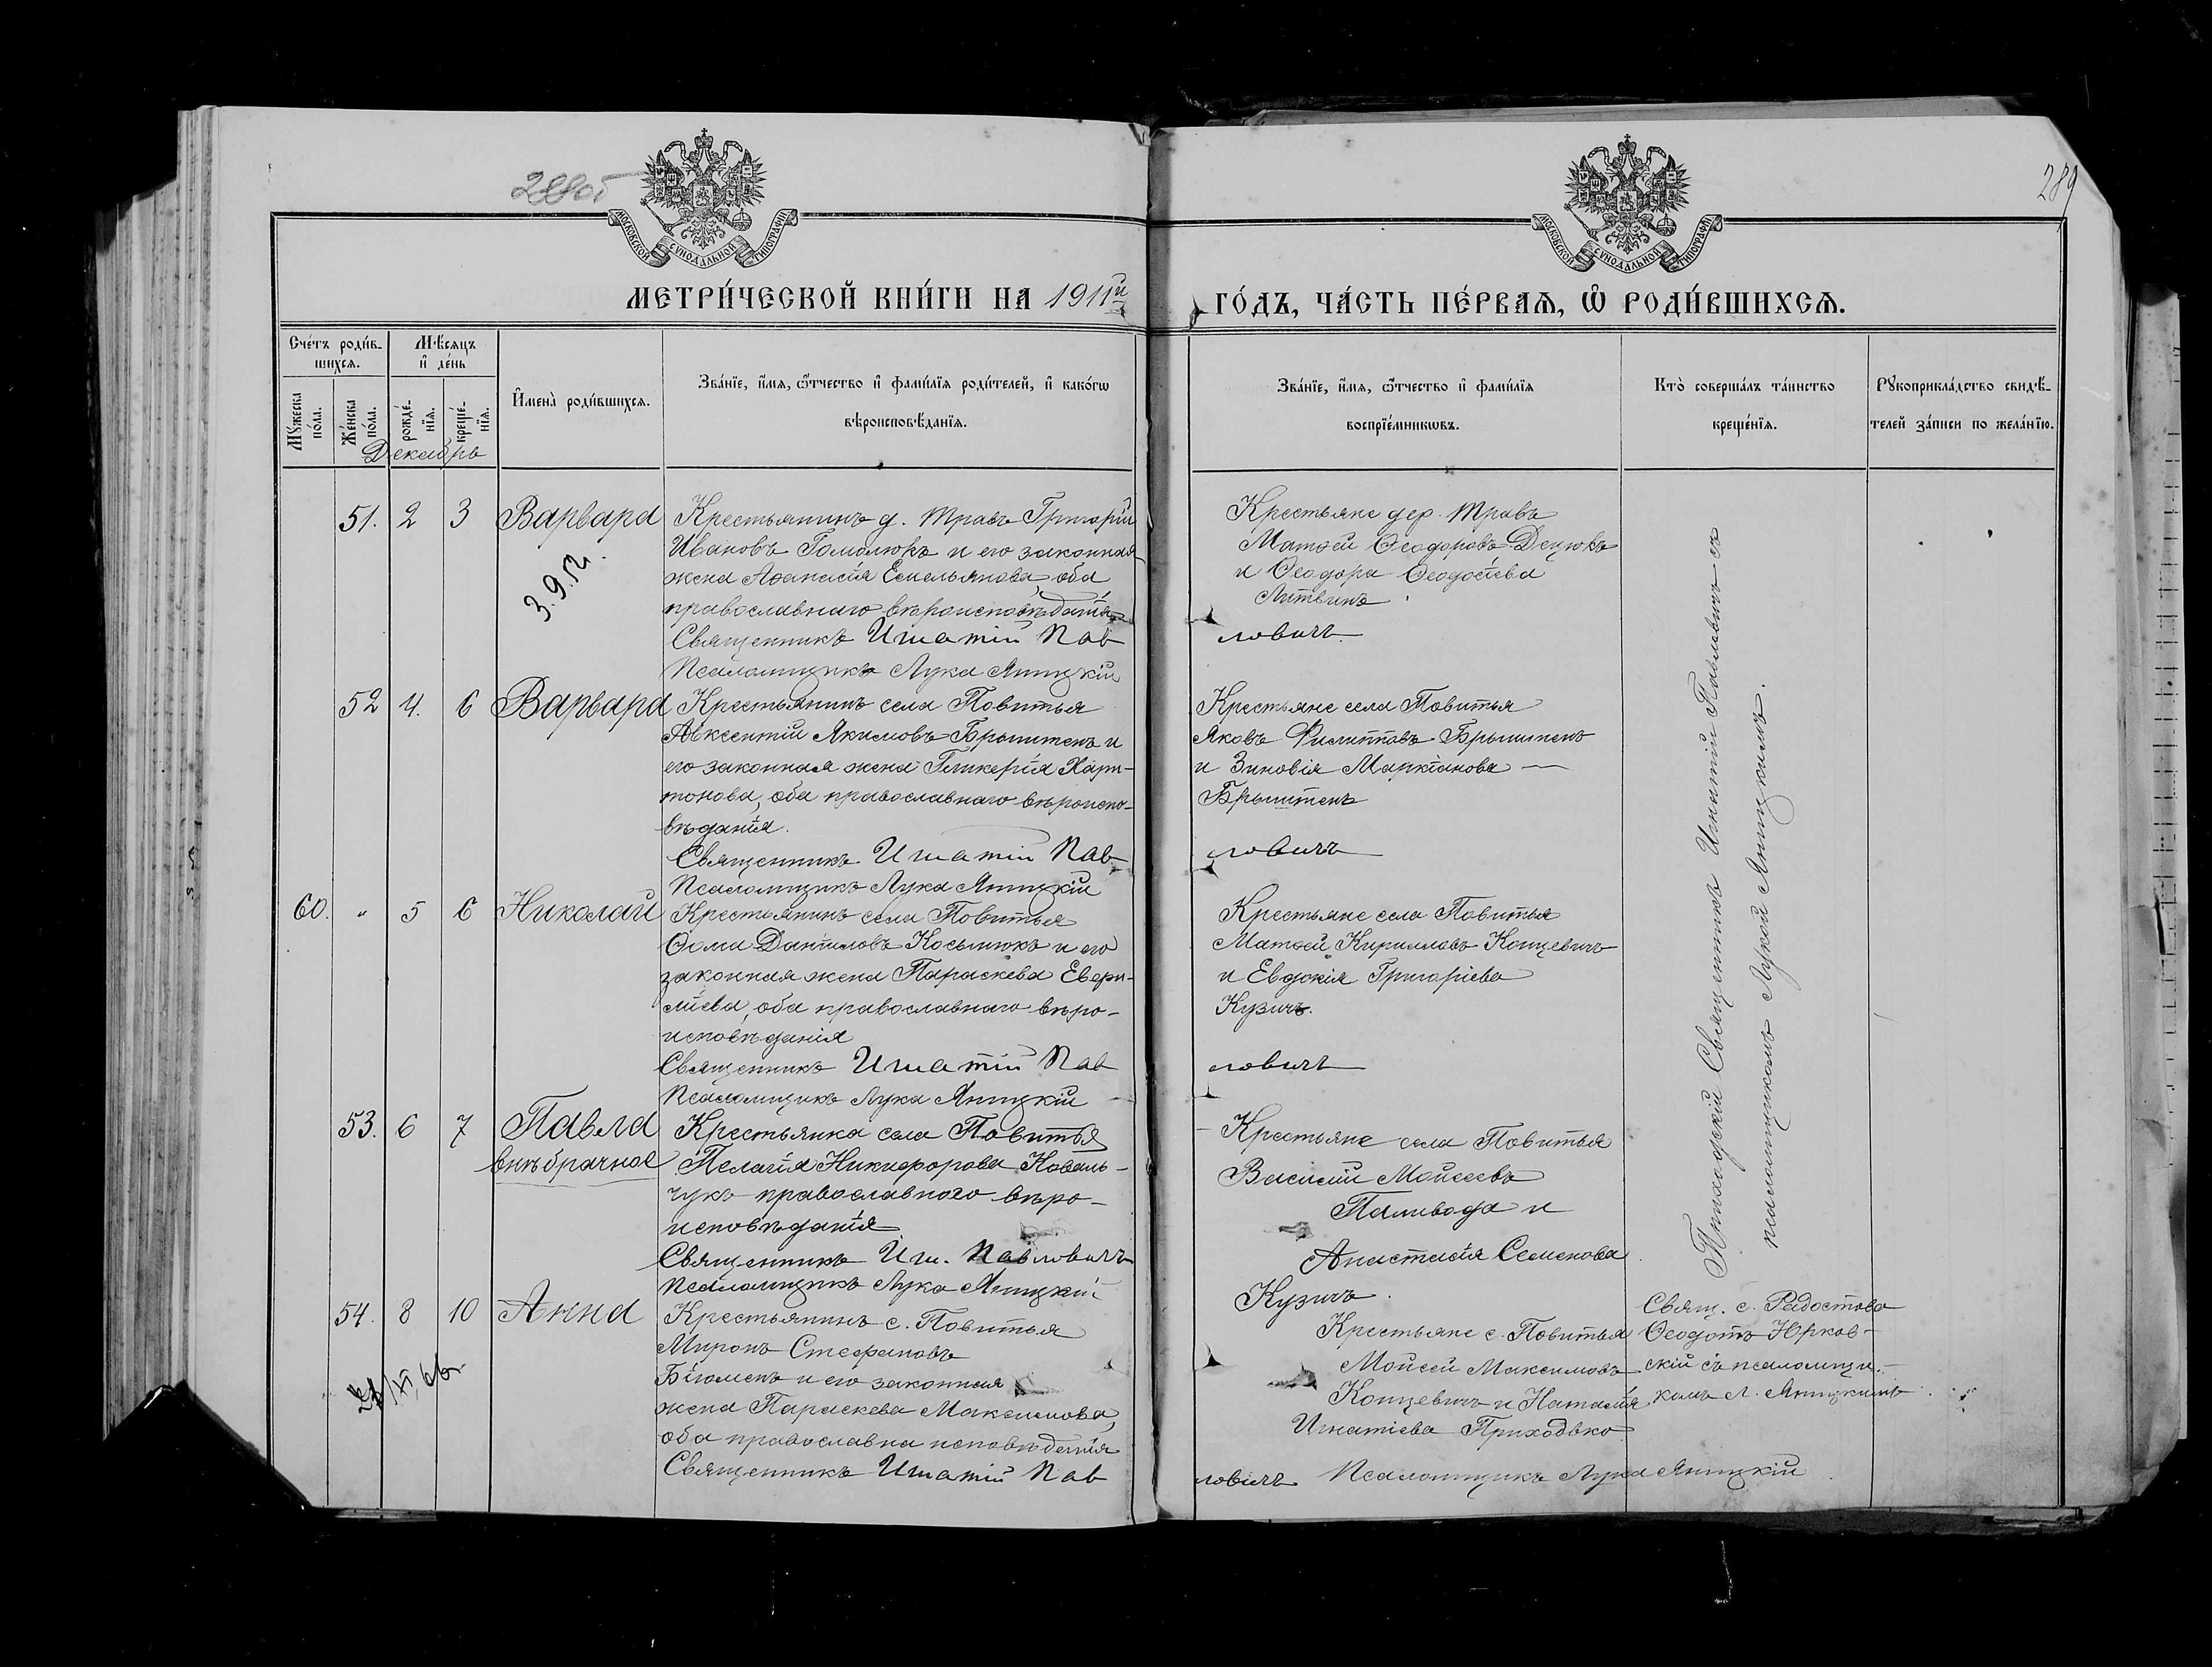 289
МОСКОВСКОЙ СУНОДАЛЬНОЙ ТИПОГРАФІИ
МОСКОВСКОЙ СУНОДАЛЬНОЙ ТИПОГРАФІИ
МЕТРИ́ЧЕСКОЙ КНИ́ГИ НА 1911й
ГО́ДЪ, ЧА́СТЬ ПЕ́РВАѦ, Ѡ҆ РОДИ́ВШИХСѦ.
Сче́тъ роди́в-
шихся.
Мѣ́сяцъ
и҆ де́нь
Му́жеска по́ла.
Же́нска по́ла.
рожде́-
нїя.
креще́-
нїя.
И҆мена̀ роди́вшихся.
Зва́нїе, и҆́мя, ѻ҆́тчество и҆ фами́лїя роди́телей, и҆ како́гѡ
вѣроисповѣ́данїя.
Зва́нїе, и҆́мя, ѻ҆́тчество и҆ фами́лїя
воспрїе́мникѡвъ.
Кто̀ соверша́лъ та́инство
креще́нїя.
Рꙋкоприкла́дство свидѣ́-
телей за́писи по жела́нїю.
Декабрь
51. 2 3 Варвара
3.9.52.
Крестьянинъ д. Травъ Григорій
Ивановъ Гомолюкъ и его законная
жена Аѳанасія Емельянова, оба
православнаго вѣроисповѣданія
Священникъ Игнатій Пав
ловичъ.
Псаломщикъ Лука Яницкій
Крестьяне дер. Травъ
Матѳей Ѳеодоровъ Децюкъ
и Ѳеодора Ѳеодосіева
Литвинъ
52 4. 6 Варвара
Крестьянинъ села Повитья
Авксентій Якимовъ Брынтенъ и
его законная жена Гликерія Хари-
тонова, оба православнаго вѣроиспо-
вѣданія.
Священникъ Игнатій Пав
ловичъ
Псаломщикъ Лука Яницкій
Крестьяне села Повитья
Яковъ Филипповъ Брынтенъ
и Зиновія Маркіанова
Брынтенъ
60. " 5 6 Николай
Крестьянинъ села Повитья
Ѳома Даниловъ Косынюкъ и его
законная жена Параскева Евери-
ліева, оба православнаго вѣро-
исповѣданія
Священникъ Игнатій Пав
ловичъ
Псаломщикъ Лука Яницкій
Крестьяне села Повитья
Матѳей Кирилловъ Концевичъ
и Евдокія Григоріева
Кузичъ.
53. 6 7 Павла
внѣбрачное
Крестьянка села Повитья
Пелагія Никифорова Коваль-
чукъ православного вѣро-
исповѣданія
Священникъ Игн. Павловичъ
Псаломщикъ Лука Яницкій
Крестьяне села Повитья
Василій Моисеевъ
Паливода и
Анастасія Семенова
Кузичъ.
54. 8 10 Анна
Крестьянинъ с. Повитья
Миронъ Стефановъ
Бігоменъ и его законная
жена Параскева Максимова,
оба православна исповѣданія
Священникъ Игнатій Пав
ловичъ Псаломщикъ Лука Яницкій
Крестьяне с. Повитья
Мойсей Максимовъ
Концевичъ и Наталія
Игнатіева Приходько
Приходскій Священникъ Игнатій Павловичъ съ
псаломщикомъ Лукой Яницкимъ.
Свящ. с. Радостова
Ѳеодотъ Юрков-
скій съ псаломщи-
комъ Л. Яницкимъ